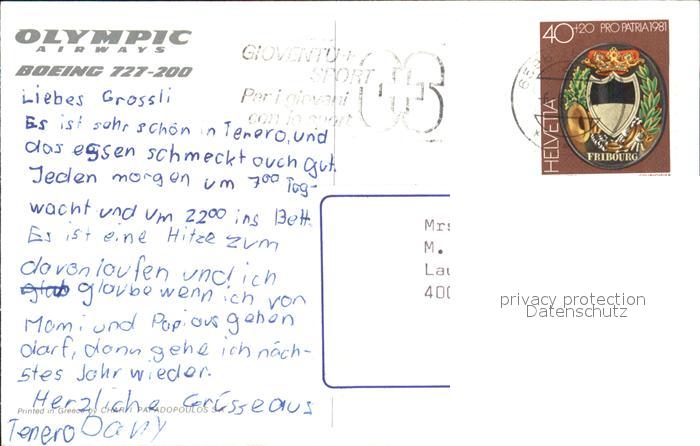 OLYMPIC
AIRWAYS
BOEING 727-200
GIOVENTÙ +
SPORT
Per i giovani
con lo sport
40+20 PRO PATRIA 1981
HELVETIA
FRIBOURG
Liebes Grossli
Es ist sehr schön in Tenero, und
das essen schmeckt auch gut.
Jeden morgen um 7⁰⁰ Tag-
wacht und um 22⁰⁰ ins Bett.
Es ist eine Hitze zum
davonlaufen und ich
glaube wenn ich von
Mami und Papi aus gehen
darf, dann gehe ich näch-
stes Jahr wieder.
Herzliche Grüsse aus
Tenero Dany
Mrs
M.
Lau
400
privacy protection
Datenschutz
Printed in Greece by CHAR. PAPADOPOULOS S.A.